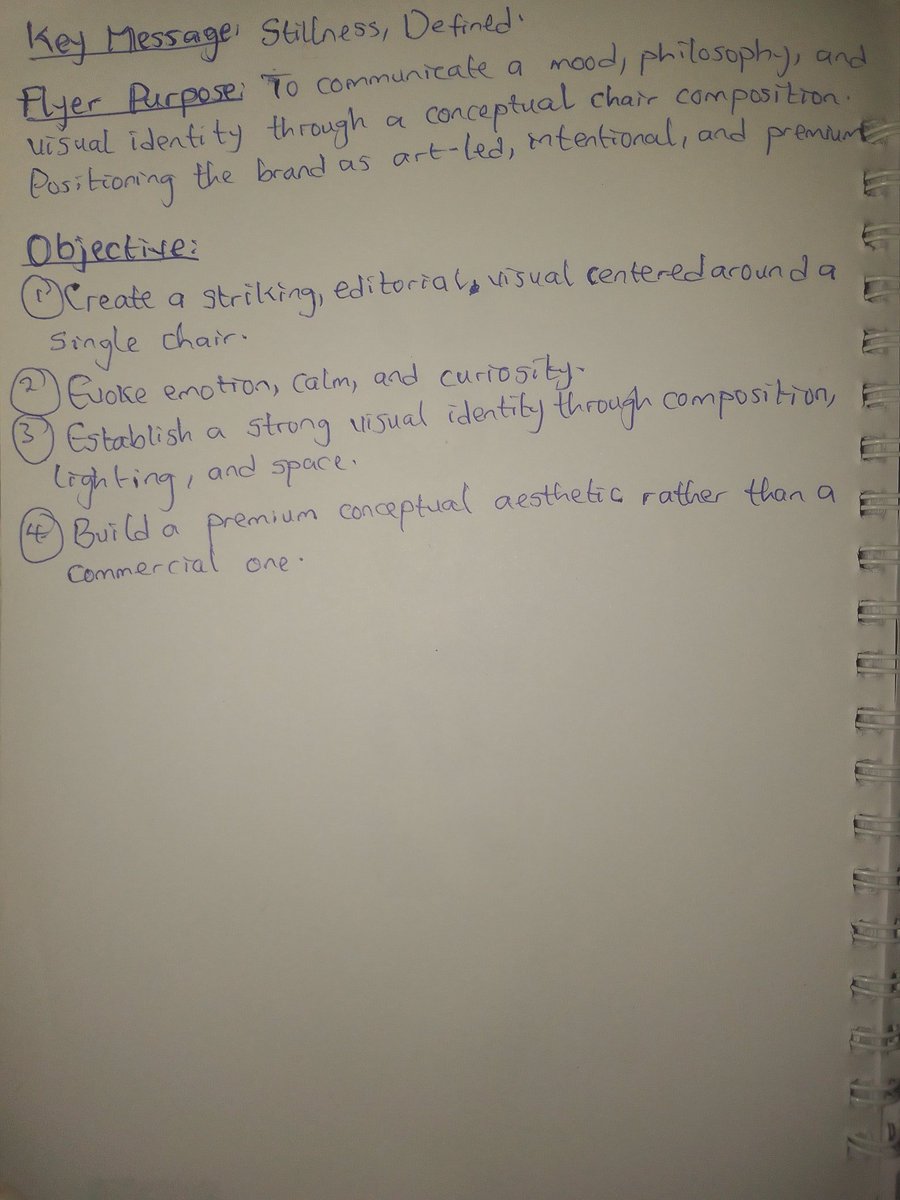 Key Message: Stillness, Defined.
Flyer Purpose: To communicate a mood, philosophy, and
visual identity through a conceptual chair composition.
Positioning the brand as art-led, intentional, and premium
Objective:
① Create a striking, editorial, visual centered around a
single chair.
② Evoke emotion, calm, and curiosity.
③ Establish a strong visual identity through composition,
lighting, and space.
④ Build a premium conceptual aesthetic rather than a
commercial one.